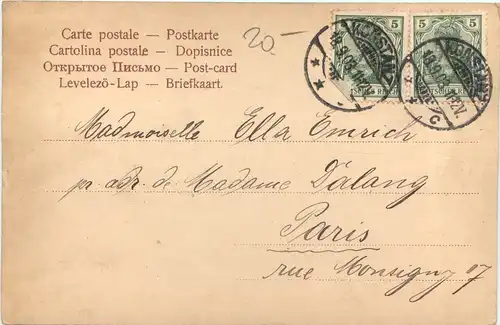 Carte postale — Postkarte
Cartolina postale — Dopisnice
Открытое Письмо — Post-card
Levelező-Lap — Briefkaart.
20.-
5 5
KONSTANZ
Mademoiselle Ella Emrich
pr adr. de Madame Dalang
Paris
rue Monsigny 17